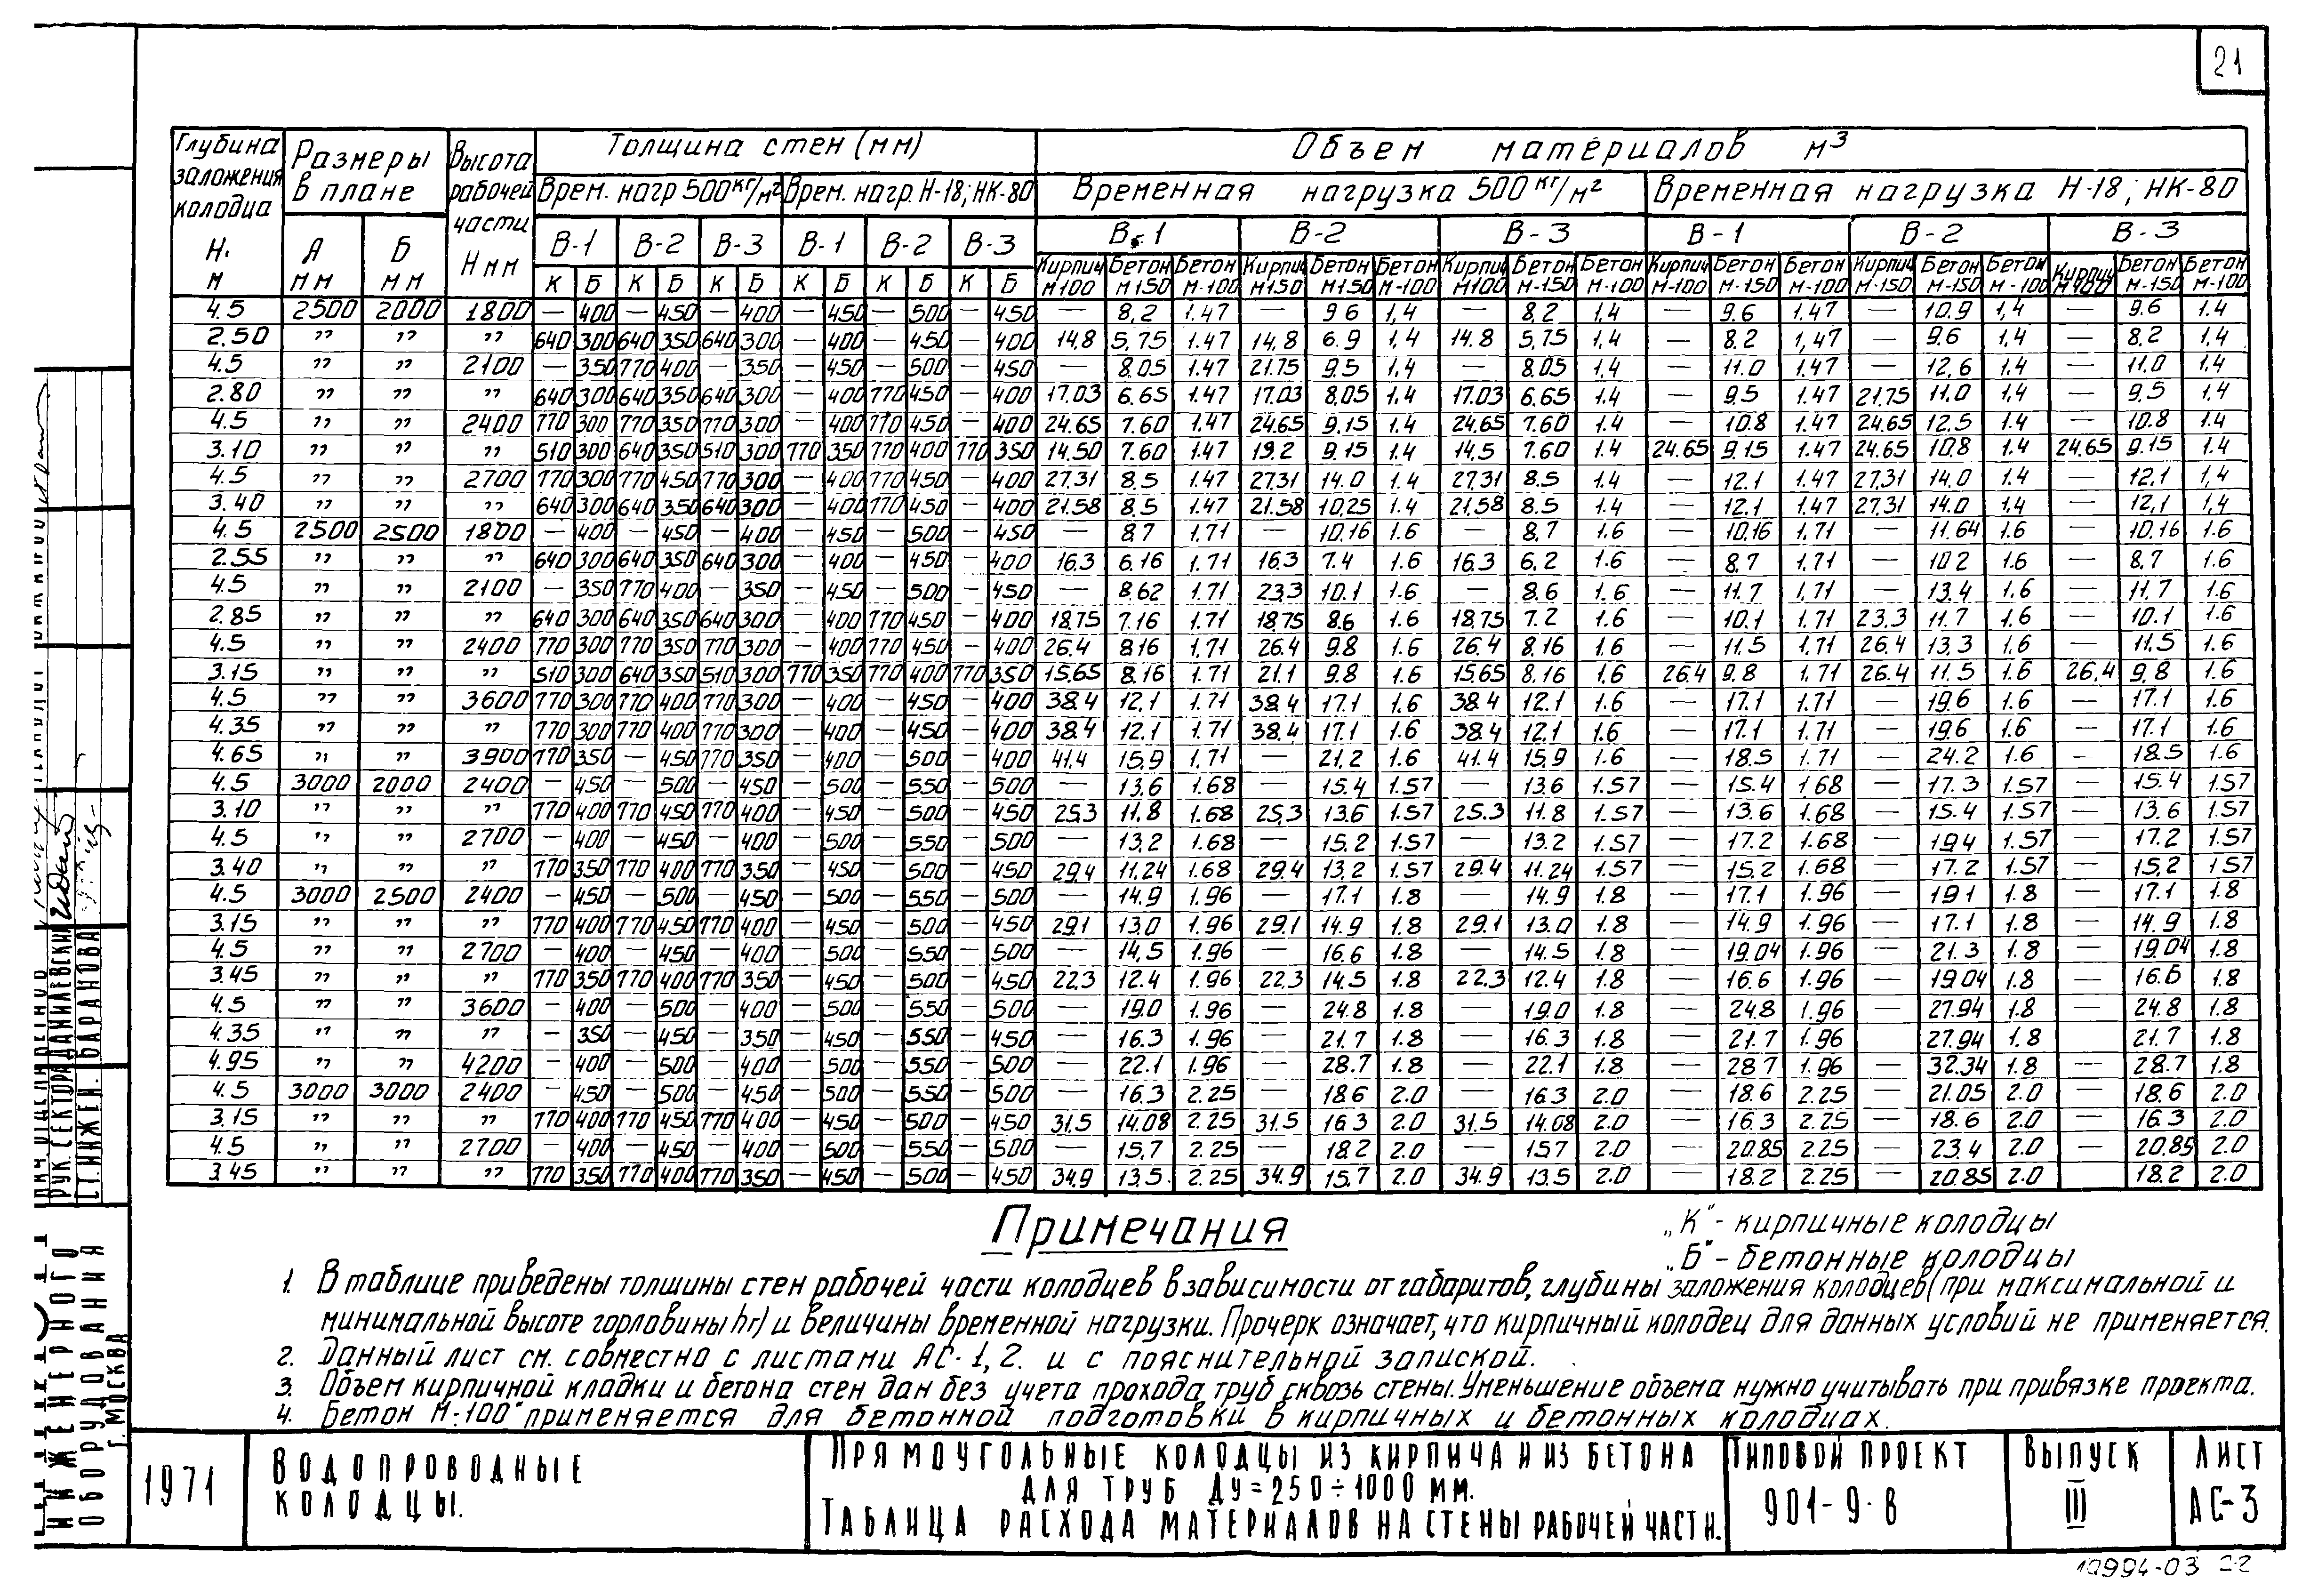 21
Глубина заложения колодца Н. м | Размеры в плане | Высота рабочей части Н мм | Толщина стен (мм) | Объем материалов м³
Врем. нагр 500 кг/м² | Врем. нагр. Н-18; НК-80 | Временная нагрузка 500 кг/м² | Временная нагрузка Н-18; НК-80
А мм | Б мм | В-1 | В-2 | В-3 | В-1 | В-2 | В-3 | В-1 | В-2 | В-3 | В-1 | В-2 | В-3
К Б К Б К Б К Б К Б К Б | Кирпич М100 | Бетон М150 | Бетон М-100 | Кирпич М150 | Бетон М150 | Бетон М-100 | Кирпич М100 | Бетон М-150 | Бетон М-100 | Кирпич М-100 | Бетон М-150 | Бетон М-100 | Кирпич М-150 | Бетон М-150 | Бетон М-100 | Кирпич | Бетон М-150 | Бетон М-100
4.5 2500 2000 1800 — 400 — 450 — 400 — 450 — 500 — 450 — 8,2 1.47 — 9 6 1,4 — 8.2 1,4 — 9.6 1.47 — 10.9 1,4 — 9.6 1.4
2.50 " " " 640 300 640 350 640 300 — 400 — 450 — 400 14,8 5,75 1.47 14,8 6.9 1,4 14.8 5,75 1,4 — 8.2 1,47 — 9.6 1,4 — 8.2 1,4
4.5 " " 2100 — 350 770 400 — 350 — 450 — 500 — 450 — 8.05 1.47 21.75 9.5 1,4 — 8.05 1.4 — 11.0 1.47 — 12,6 1.4 — 11.0 1,4
2.80 " " " 640 300 640 350 640 300 — 400 770 450 — 400 17.03 6.65 1.47 17.03 8,05 1.4 17.03 6.65 1.4 — 9.5 1.47 21,75 11.0 1,4 — 9,5 1,4
4.5 " " 2400 770 300 770 350 770 300 — 400 770 450 — 400 24.65 7.60 1.47 24.65 9.15 1.4 24.65 7.60 1.4 — 10.8 1.47 24.65 12.5 1.4 — 10.8 1.4
3.10 " " " 510 300 640 350 510 300 770 350 770 400 770 350 14.50 7.60 1.47 19.2 9.15 1.4 14,5 7.60 1.4 24.65 9.15 1.47 24.65 10.8 1.4 24.65 9.15 1.4
4.5 " " 2700 770 300 770 450 770 300 — 400 770 450 — 400 27.31 8,5 1.47 27.31 14.0 1.4 27.31 8.5 1.4 — 12.1 1.47 27.31 14.0 1.4 — 12,1 1,4
3.40 " " " 640 300 640 350 640 300 — 400 770 450 — 400 21.58 8,5 1.47 21.58 10,25 1.4 21.58 8.5 1.4 — 12.1 1.47 27,31 14.0 1.4 — 12,1 1,4
4.5 2500 2500 1800 — 400 — 450 — 400 — 450 — 500 — 450 — 8.7 1.71 — 10.16 1.6 — 8,7 1.6 — 10.16 1,71 — 11.64 1.6 — 10.16 1.6
2.55 " " " 640 300 640 350 640 300 — 400 — 450 — 400 16.3 6.16 1.71 16,3 7.4 1.6 16.3 6,2 1.6 — 8,7 1.71 — 10 2 1.6 — 8,7 1.6
4.5 " " 2100 — 350 770 400 — 350 — 450 — 500 — 450 — 8,62 1.71 23,3 10.1 1.6 — 8.6 1.6 — 11.7 1,71 — 13.4 1,6 — 11.7 1.6
2.85 " " " 640 300 640 350 640 300 — 400 770 450 — 400 18,75 7.16 1.71 18,75 8.6 1.6 18,75 7.2 1.6 — 10.1 1.71 23.3 11.7 1.6 — 10.1 1.6
4.5 " " 2400 770 300 770 350 770 300 — 400 770 450 — 400 26.4 8.16 1,71 26.4 9.8 1.6 26.4 8.16 1.6 — 11.5 1.71 26.4 13,3 1,6 — 11.5 1.6
3.15 " " " 510 300 640 350 510 300 770 350 770 400 770 350 15,65 8.16 1.71 21.1 9.8 1.6 15,65 8.16 1.6 26.4 9.8 1.71 26.4 11.5 1.6 26.4 9,8 1.6
4.5 " " 3600 770 300 770 400 770 300 — 400 — 450 — 400 38.4 12,1 1.71 38.4 17.1 1.6 38.4 12.1 1.6 — 17.1 1.71 — 19.6 1.6 — 17.1 1.6
4.35 " " " 770 300 770 400 770 300 — 400 — 450 — 400 38.4 12.1 1.71 38.4 17.1 1.6 38.4 12.1 1.6 — 17.1 1.71 — 19.6 1.6 — 17.1 1.6
4.65 " " 3900 770 350 — 450 770 350 — 400 — 500 — 400 41.4 15,9 1,71 — 21,2 1.6 41.4 15,9 1.6 — 18.5 1.71 — 24.2 1.6 — 18.5 1.6
4.5 3000 2000 2400 — 450 — 500 — 450 — 500 — 550 — 500 — 13,6 1.68 — 15.4 1.57 — 13,6 1.57 — 15.4 1.68 — 17.3 1.57 — 15.4 1.57
3.10 " " " 770 400 770 450 770 400 — 450 — 500 — 450 25.3 11.8 1.68 25,3 13.6 1.57 25.3 11.8 1.57 — 13.6 1.68 — 15.4 1.57 — 13.6 1.57
4.5 " " 2700 — 400 — 450 — 400 — 500 — 550 — 500 — 13,2 1.68 — 15.2 1.57 — 13.2 1.57 — 17.2 1.68 — 19.4 1.57 — 17.2 1.57
3.40 " " " 770 350 770 400 770 350 — 450 — 500 — 450 29.4 11.24 1.68 29.4 13,2 1.57 29.4 11.24 1.57 — 15,2 1.68 — 17.2 1.57 — 15,2 1.57
4.5 3000 2500 2400 — 450 — 500 — 450 — 500 — 550 — 500 — 14.9 1.96 — 17.1 1.8 — 14.9 1.8 — 17.1 1.96 — 19.1 1.8 — 17.1 1.8
3.15 " " " 770 400 770 450 770 400 — 450 — 500 — 450 29.1 13,0 1.96 29.1 14.9 1.8 29.1 13.0 1.8 — 14.9 1.96 — 17.1 1.8 — 14.9 1.8
4.5 " " 2700 — 400 — 450 — 400 — 500 — 550 — 500 — 14,5 1.96 — 16.6 1.8 — 14.5 1.8 — 19.04 1.96 — 21.3 1.8 — 19.04 1.8
3.45 " " " 770 350 770 400 770 350 — 450 — 500 — 450 22,3 12.4 1.96 22,3 14.5 1.8 22.3 12.4 1.8 — 16.6 1.96 — 19.04 1.8 — 16.6 1.8
4.5 " " 3600 — 400 — 500 — 400 — 500 — 550 — 500 — 19.0 1.96 — 24.8 1.8 — 19.0 1.8 — 24.8 1.96 — 27.94 1.8 — 24.8 1.8
4.35 " " " — 350 — 450 — 350 — 450 — 550 — 450 — 16.3 1.96 — 21.7 1.8 — 16.3 1.8 — 21.7 1.96 — 27.94 1.8 — 21.7 1.8
4.95 " " 4200 — 400 — 500 — 400 — 500 — 550 — 500 — 22.1 1.96 — 28.7 1.8 — 22.1 1.8 — 28 7 1.96 — 32.34 1.8 — 28.7 1.8
4.5 3000 3000 2400 — 450 — 500 — 450 — 500 — 550 — 500 — 16.3 2.25 — 18.6 2.0 — 16.3 2.0 — 18.6 2.25 — 21.05 2.0 — 18.6 2.0
3.15 " " " 770 400 770 450 770 400 — 450 — 500 — 450 31.5 14.08 2.25 31.5 16.3 2.0 31.5 14.08 2.0 — 16.3 2.25 — 18.6 2.0 — 16.3 2.0
4.5 " " 2700 — 400 — 450 — 400 — 500 — 550 — 500 — 15,7 2.25 — 18.2 2.0 — 15.7 2.0 — 20.85 2.25 — 23.4 2.0 — 20.85 2.0
3.45 " " " 770 350 770 400 770 350 — 450 — 500 — 450 34.9 13,5 2.25 34.9 15,7 2.0 34.9 13.5 2.0 — 18.2 2.25 — 20.85 2.0 — 18.2 2.0
Примечания
„К" - кирпичные колодцы
„Б" - бетонные колодцы
1. В таблице приведены толщины стен рабочей части колодцев в зависимости от габаритов, глубины заложения колодцев (при максимальной и
минимальной высоте горловины hг) и величины временной нагрузки. Прочерк означает, что кирпичный колодец для данных условий не применяется.
2. Данный лист см. совместно с листами АС-1, 2. и с пояснительной запиской.
3. Объем кирпичной кладки и бетона стен дан без учета прохода труб сквозь стены. Уменьшение объема нужно учитывать при привязке проекта.
4. Бетон М-100" применяется для бетонной подготовки в кирпичных и бетонных колодцах.
1971
Водопроводные
колодцы.
Прямоугольные колодцы из кирпича и из бетона
для труб Ду=250÷1000 мм.
Таблица расхода материалов на стены рабочей части.
Типовой проект
901-9-8
Выпуск
III
Лист
АС-3
10994-03 22
РУК. СЕКТОРА ДАНИЛЕВСКИЙ
СТ. ИНЖЕН. БАРАНОВА
ИНЖЕНЕРНОГО
ОБОРУДОВАНИЯ
Г. МОСКВА